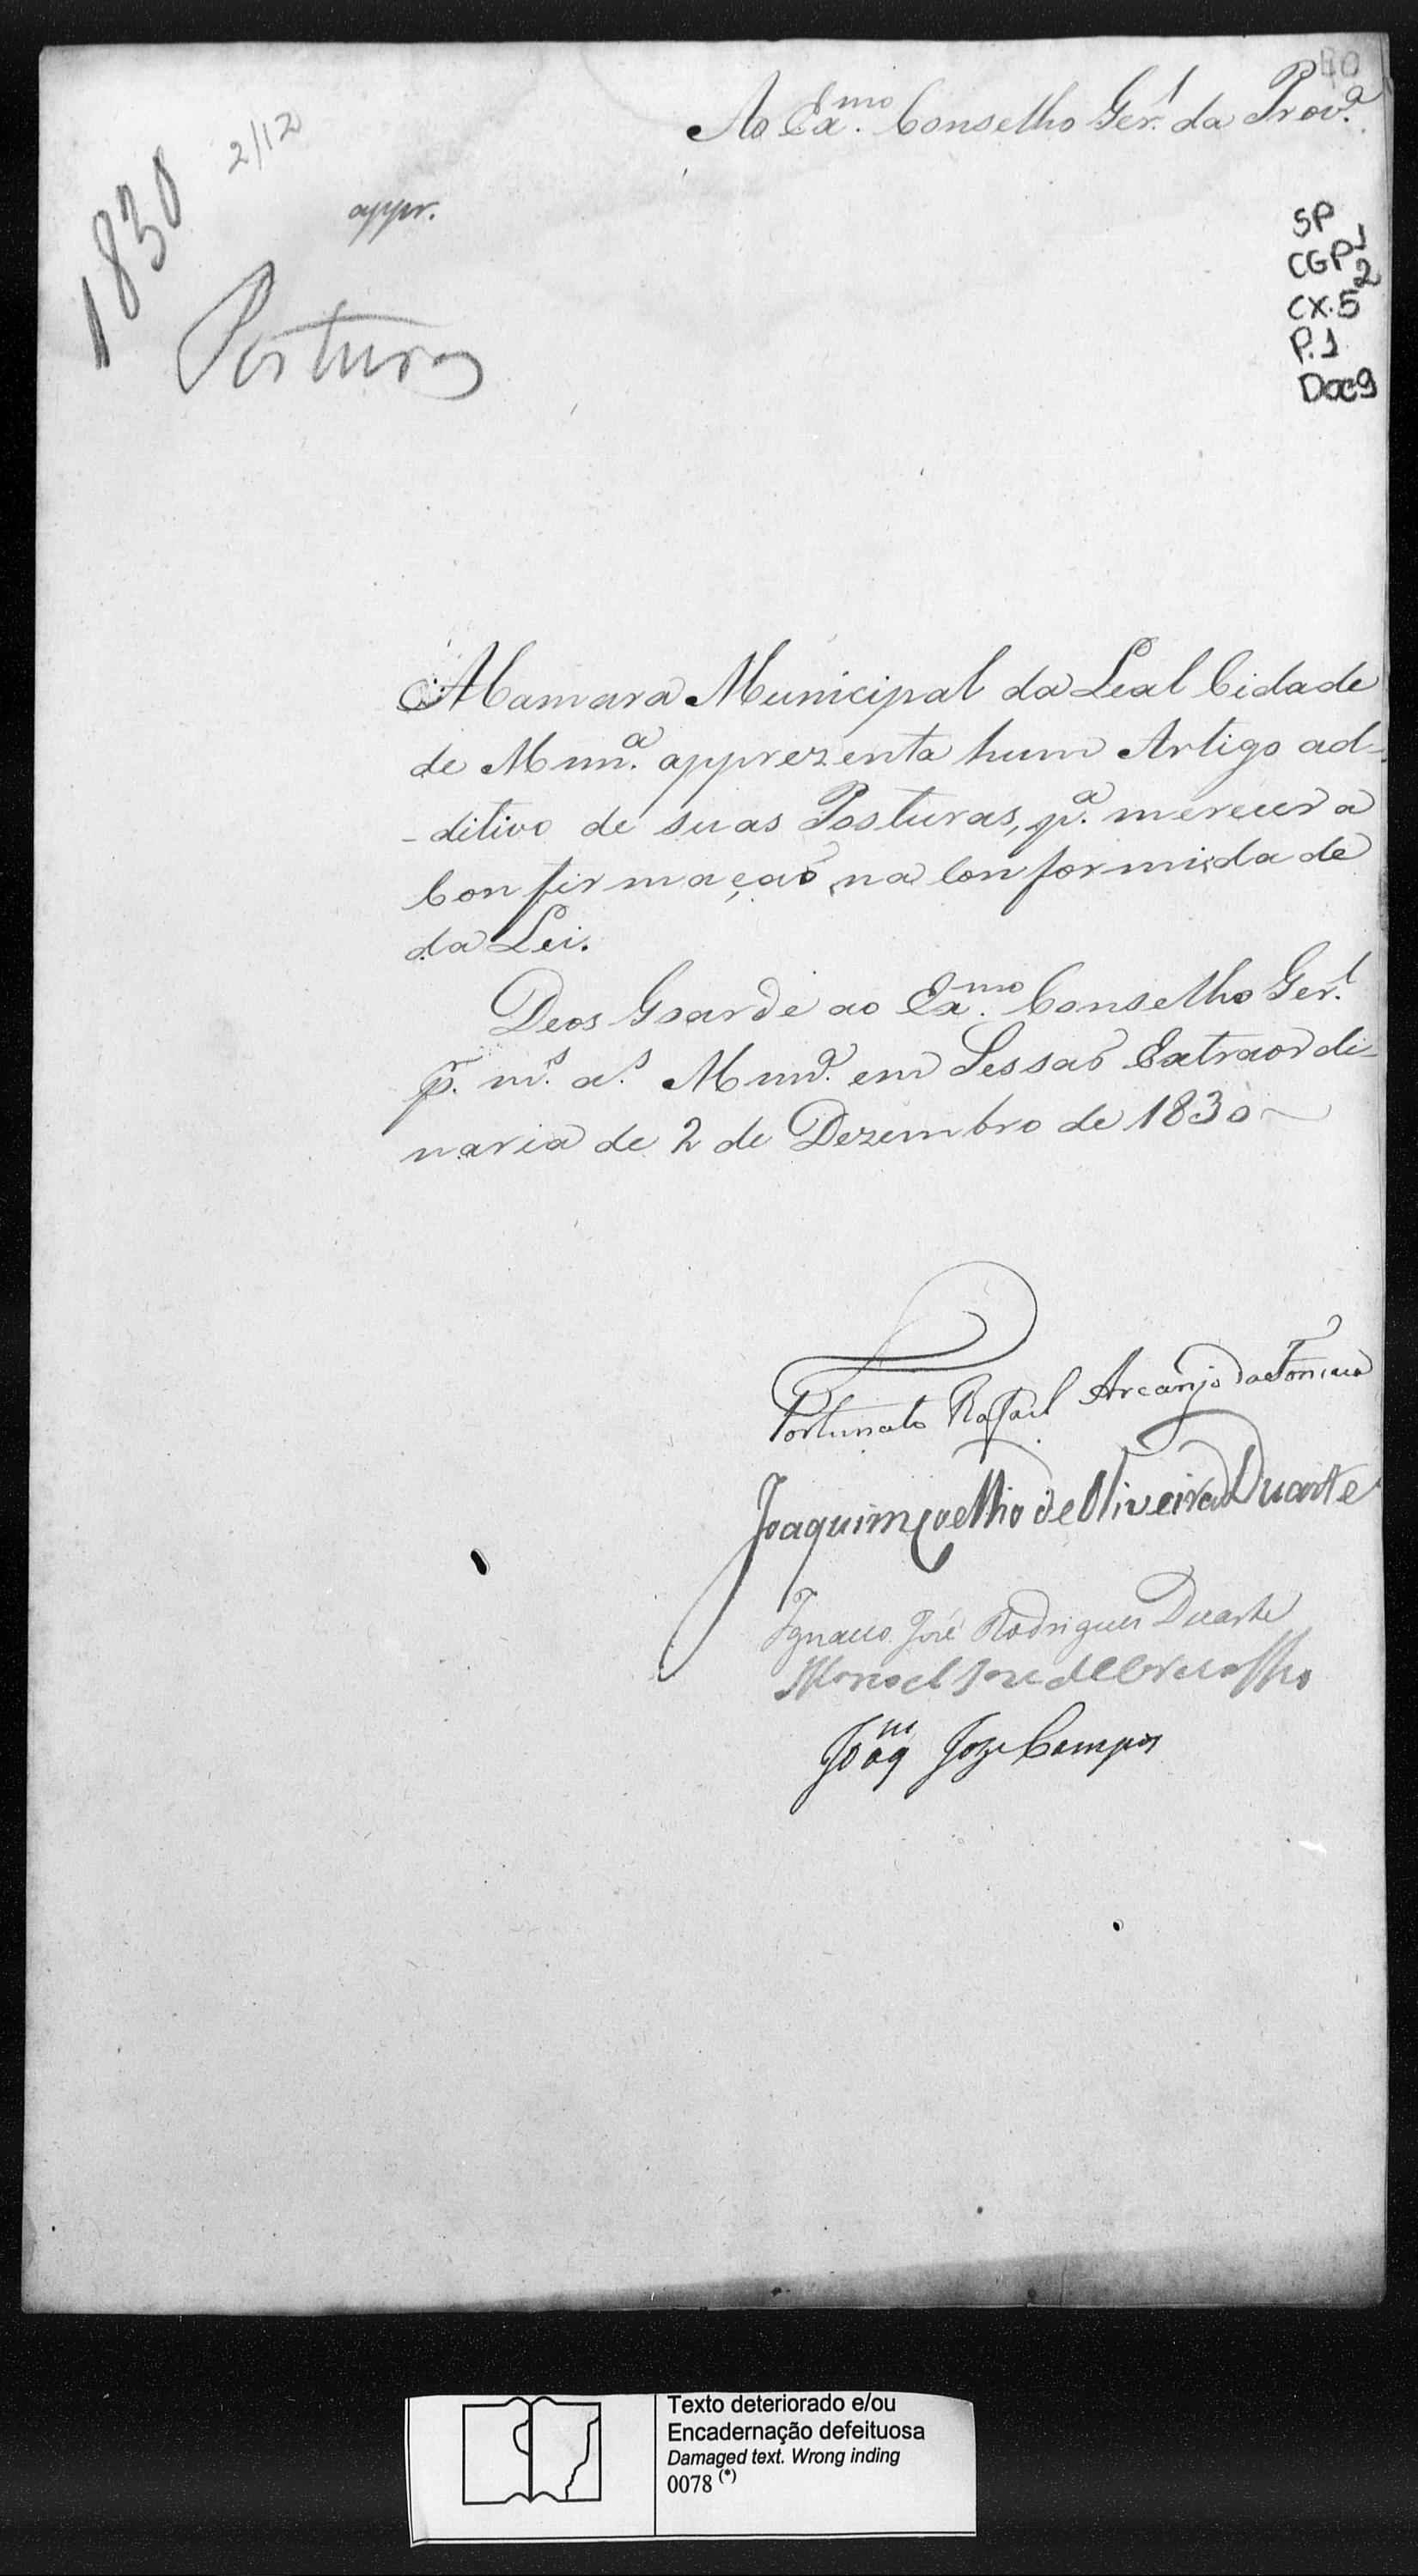 Ao Ex.mo Conselho Ger.l da Prov.a
1830
2/12
appr.
Posturas
SP
CGP1
2
CX.5
P.1
Doc9
A Camara Municipal da Leal Cidade
de Mnn.a apprezenta hum Artigo ad-
-ditivo de suas Posturas, p.a merecer a
Confirmação, na conformidade
da Lei.
Deos Goarde ao Ex.mo Conselho Ger.l
p. m.s a.s Mnn.a em Sessaõ Extraordi-
naria de 2 de Dezembro de 1830
Fortunato Rafael Arcanjo da Fonceca
Joaquim Coelho de Oliveira Duarte
Ignacio José Rodrigues Duarte
Manoel José de Carvalho
Joaq.m Joze Campos
Texto deteriorado e/ou
Encadernação defeituosa
Damaged text. Wrong inding
0078 (*)